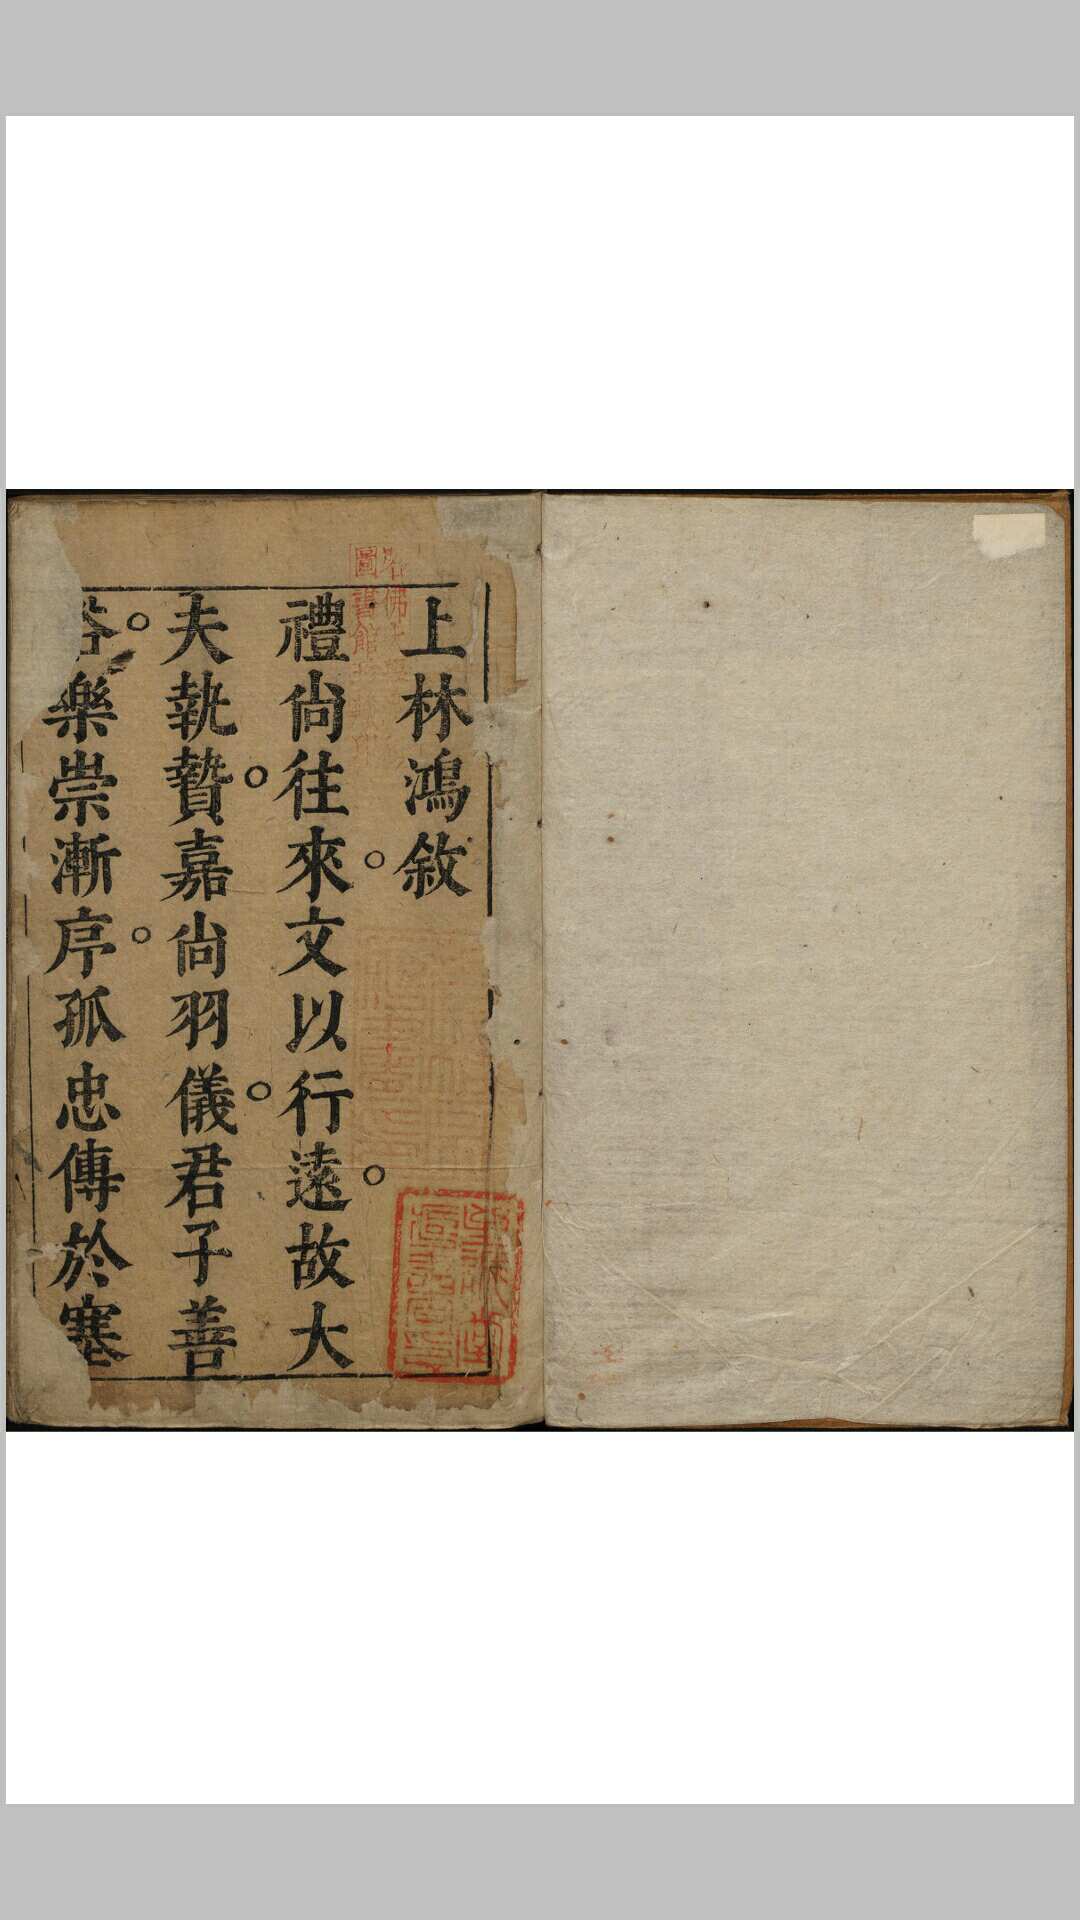 上林鴻敘
禮尚往來。文以行遠。故大
夫執贄。嘉尚羽儀。君子善
俗。樂崇漸序。孤忠傳於塞